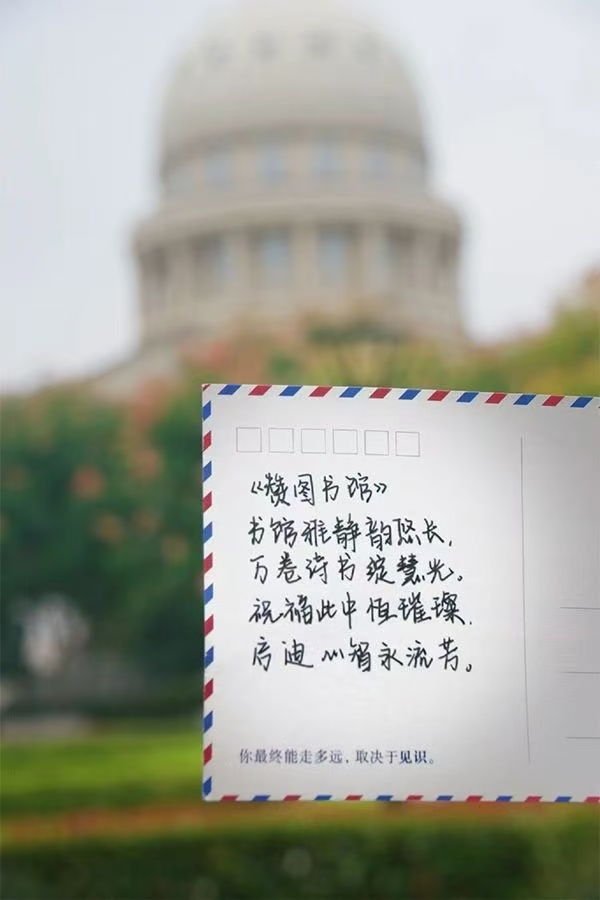 《赞图书馆》
书馆雅静韵悠长，
万卷诗书绽慧光。
祝福此中恒璀璨，
启迪心智永流芳。
你最终能走多远，取决于见识。